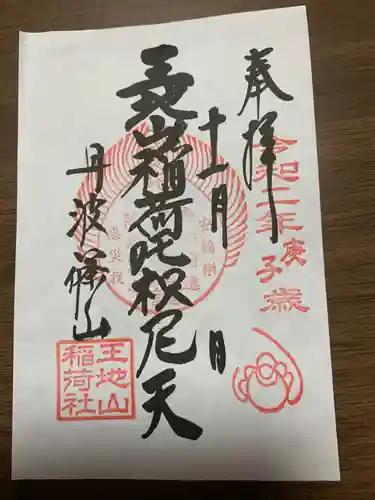 奉拝
令和二年
庚子歳
十一月 日
王地山稲荷吒枳尼天
丹波篠山
王地山
稲荷社